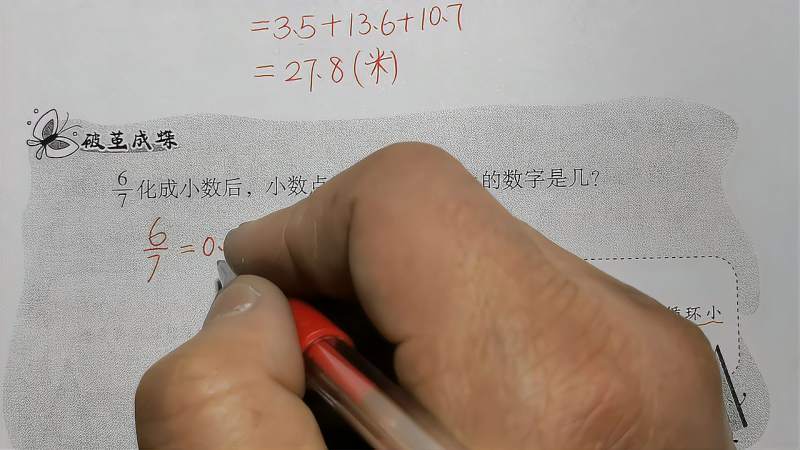 =3.5+13.6+10.7
=27.8(米)
破茧成蝶
6/7 化成小数后，小数点 的数字是几？
6/7 =0.
循环小